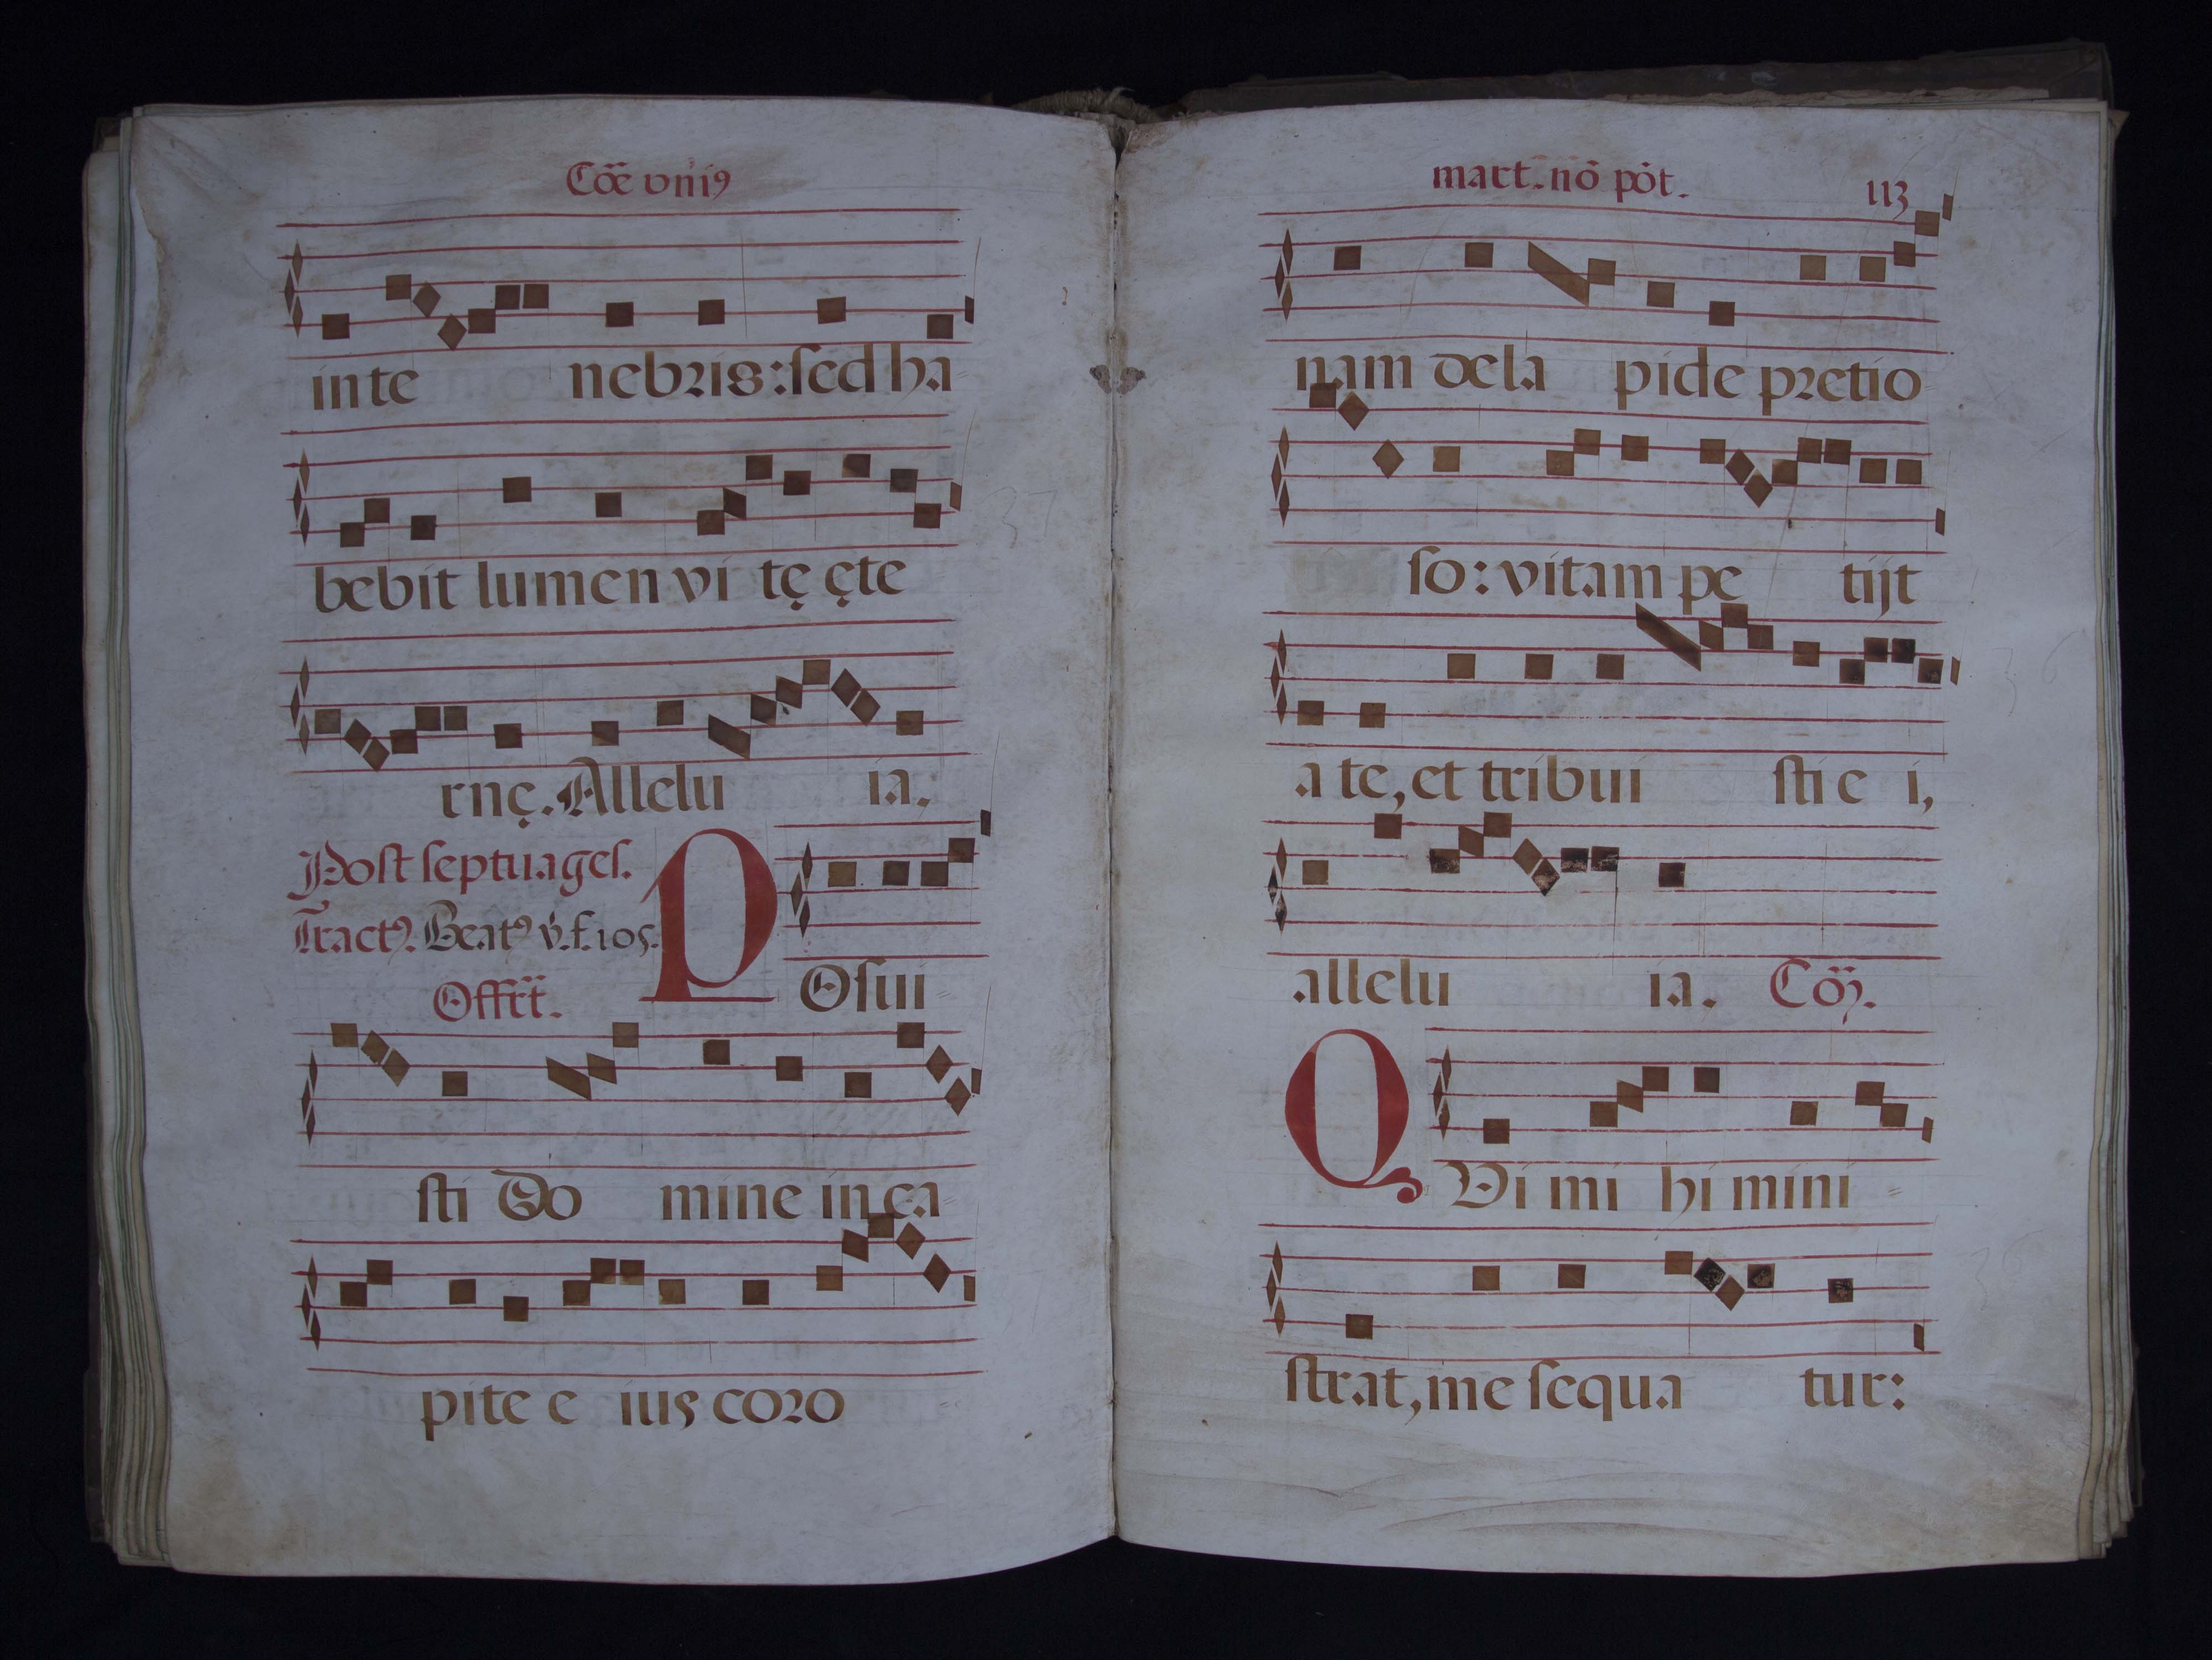 Cõe vniꝰ
in te nebris: sed ha
bebit lumen vi tę ęte
rnę. Allelu ia.
Post septuages.
Tractꝰ. Beatꝰ v̇. f. 105.
Offr̃t.
POsui
sti Do mine in ca
pite e ius coro
mart. nõ põt. 113
nam de la pide pretio
so: vitam pe tijt
a te, et tribui sti e i,
allelu ia. Cõ.
QVi mi hi mini
strat, me sequa tur: